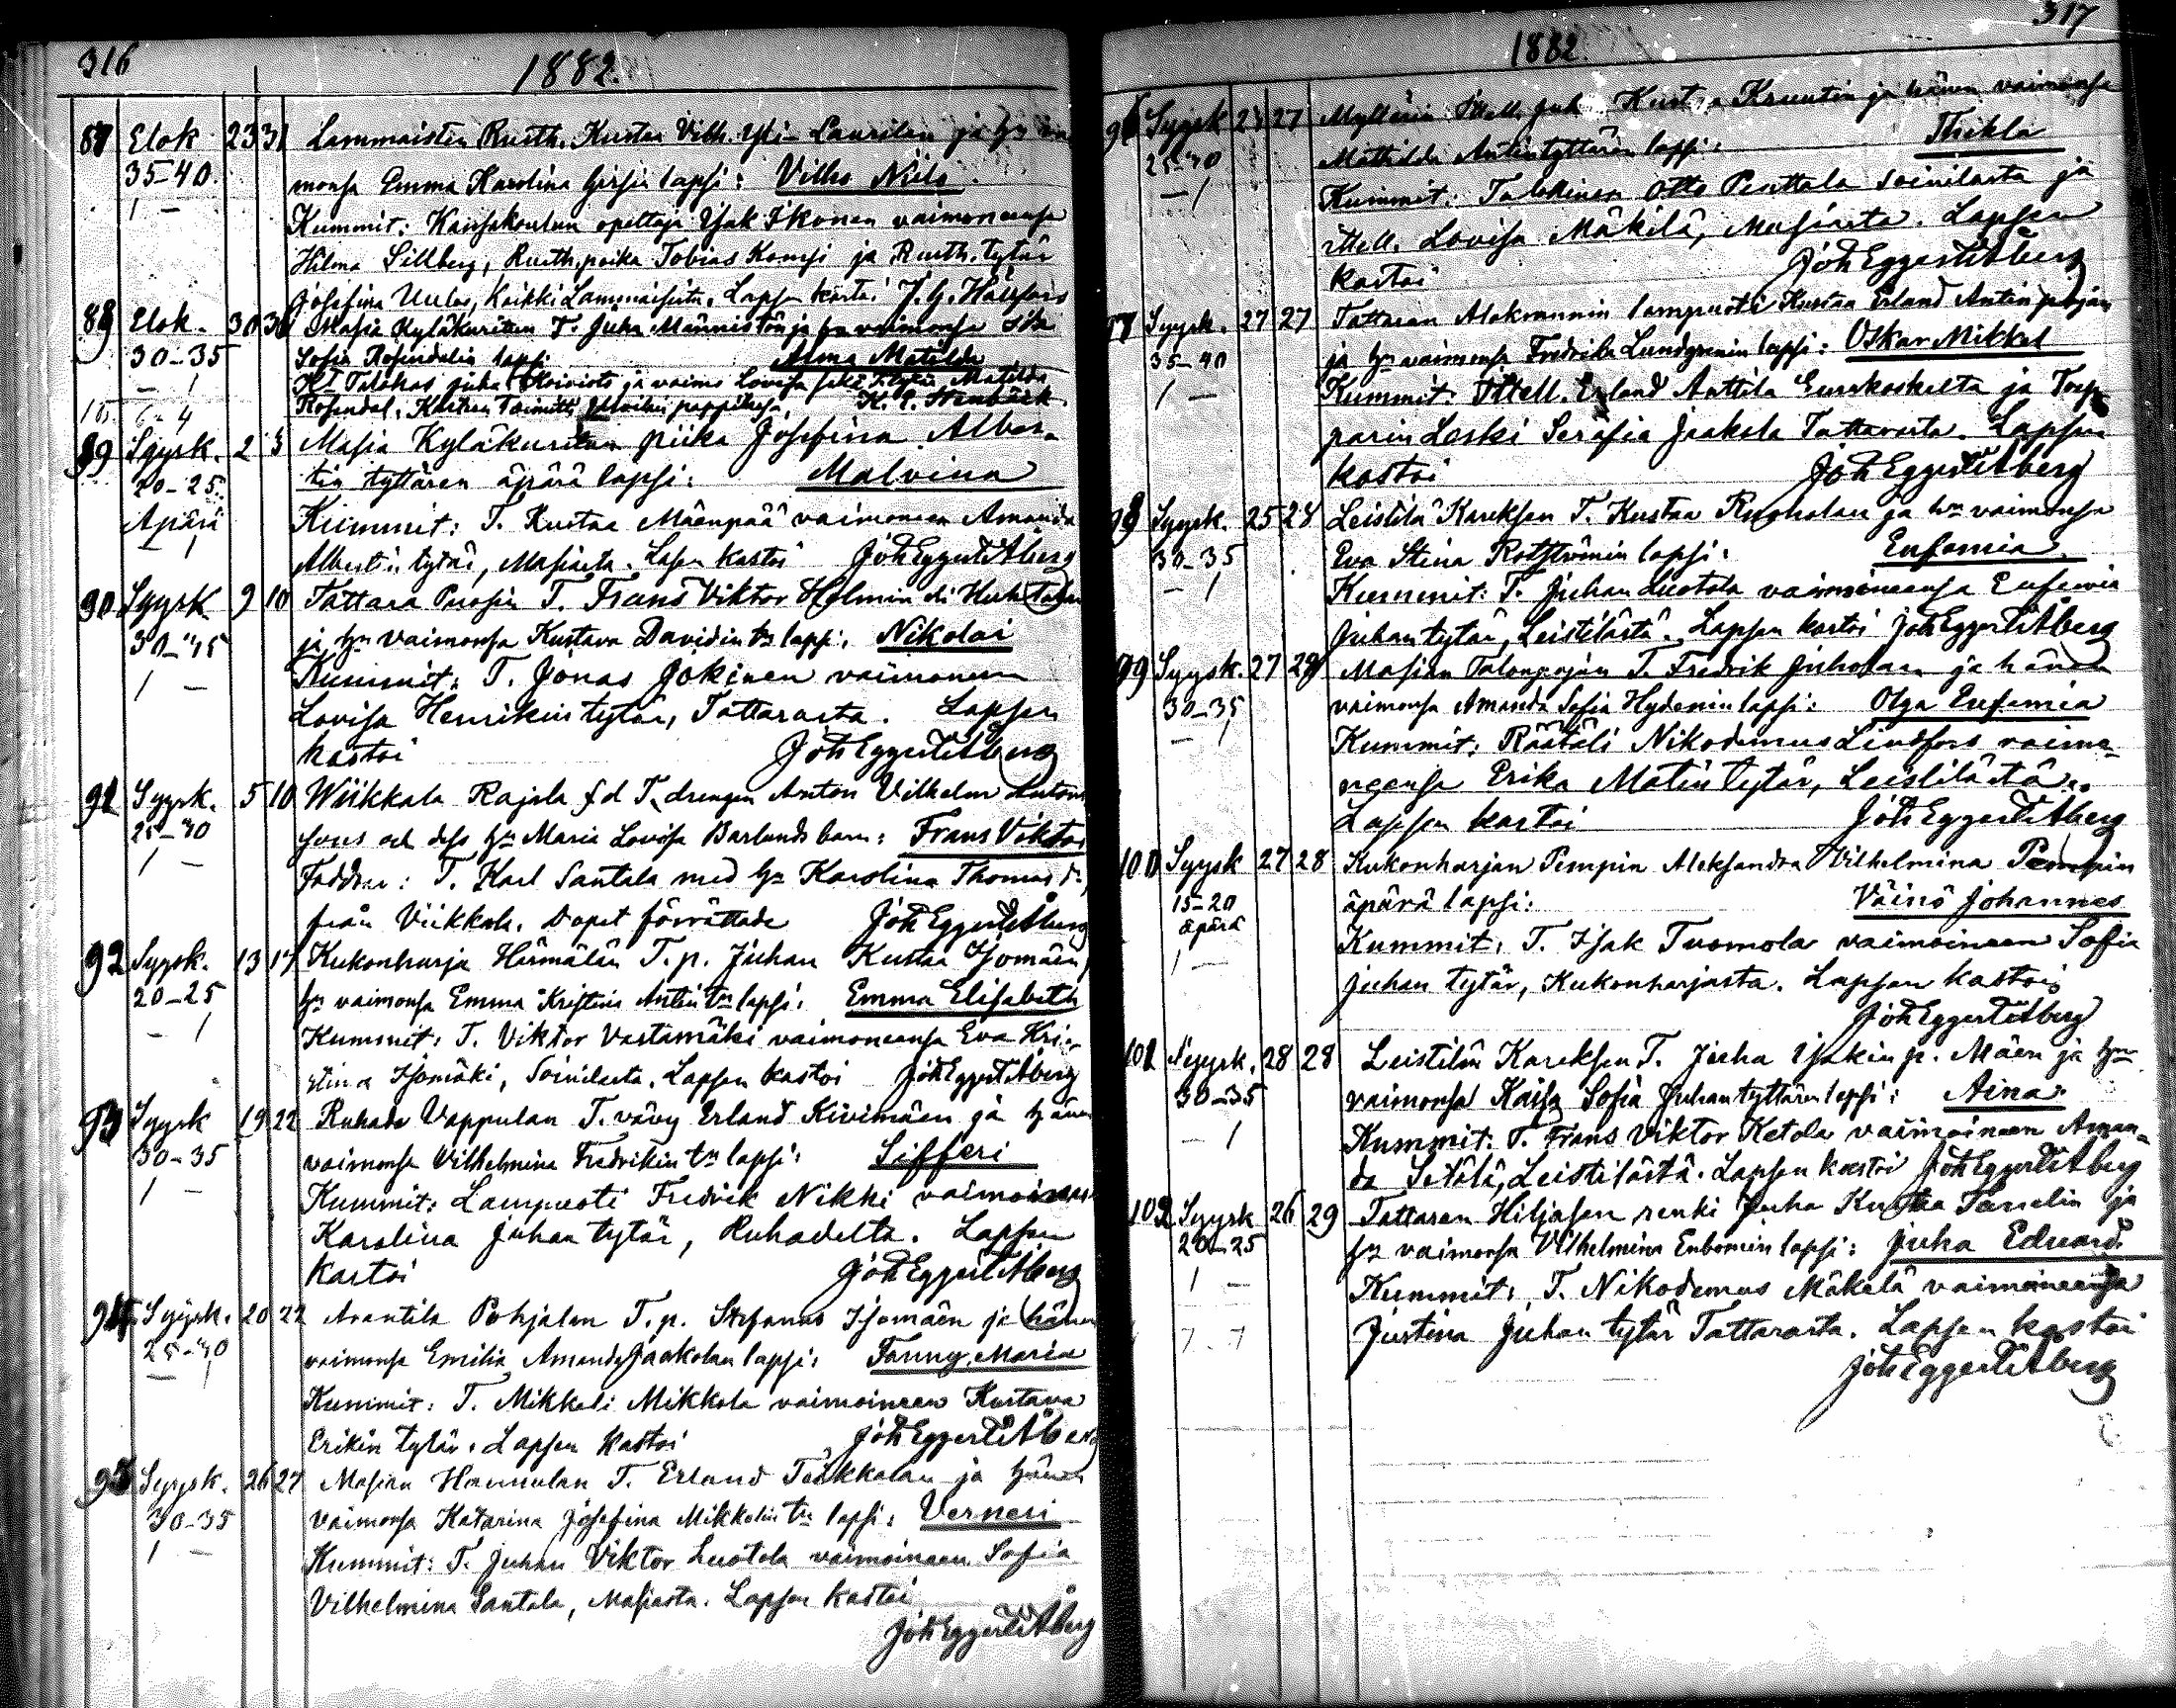 316
1882.
87 Elok 23 31 Lammaisten Rusth. Kustaa Vilh. Yli-Laurilan ja hn vai
35-40. monsa Emma Karolina lapsi: Vilho Nilo
1 - Kummit: Kansakoulun opettaja Isak Ikonen vaimoneensa
Hilma Sillberg, Rusth. poika Tobias Kompi ja Rusth. tytär
Josefina Uulas, Kaikki Lammaisista. Lapsen kastoi J. G. Hallfors
88 Elok. 30 Masia Kyläkuritun T. Juha Männistön ja hn vaimonsa
30-35 Sofia Rosendalin lapsi: Alma Matilda
- 1 Talokas Juha Koivisto ja vaimo Lovisa Matilda
Rosendal. Kasteen Toimitti pappilassa, Stenbäck.
89 Syysk. 2 3 Masia Kyläkuritun piika Josefina Alber-
20-25. tin tyttären äpärä lapsi: Malvina
Äpärä Kummit: T. Kustaa Mäenpää vaimoneen Amanda
- 1 Albertin tytär, Masiasta. Lapsen kastoi Joh Eggert Åberg
90 Syysk 9 10 Tattara Puosin T. Frans Viktor Holmin
ja hn vaimonsa Kustava Davidin tn lapsi: Nikolai
1 - Kummit: T. Jonas Jokinen vaimoneen
Lovisa Henrikin tytär, Tattarasta. Lapsen
kastoi Joh Eggert Åberg
91 Syysk. 5 10 Wiikkala Rajala f d T. drengen Anton Vilhelm Antons
25-30 sons och dess hu Maria Lovisa Barlunds barn: Frans Viktor
1 - Faddrar: T. Karl Santala med hu Karolina Thomas dr,
från Viikkala. Dopet förrättade Joh Eggert Åberg
92 Syysk. 13 17 Kukonharja Härmälän T. p. Juhan Kustaa Isomäen,
20-25 hn vaimonsa Emma Kristina Antin tn lapsi: Emma Elisabeth
- 1 Kummit: T. Viktor Vastamäki vaimoneensa Eva Kri-
stina Isomäki, Soinilasta. Lapsen kastoi Joh Eggert Åberg
93 Syysk 19 22 Ruhade Vappulan T. vävy Erland Kivimäen ja hänen
30-35 vaimonsa Vilhelmina Fredrikin tn lapsi: Sifferi
1 - Kummit: Lampuoti Fredrik Nikki vaimoineen
Karolina Juhan tytär, Ruhadelta. Lapsen
kastoi Joh Eggert Åberg
94 Syysk. 20 22 Anantila Pohjalan T. p. Stefanus Isomäen ja hänen
25-30 vaimonsa Emilia Amanda Jaakolan lapsi: Fanny Maria
- 1 Kummit: T. Mikkeli Mikkola vaimoineen Kustava
Erikin tytär. Lapsen kastoi Joh Eggert Åberg
95 Syysk. 26 27 Masian Hannulan T. Erland Takkalan ja hänen
30-35 vaimonsa Katarina Josefina Mikkelin tn lapsi: Verneri
1 - Kummit: T. Juhan Viktor Luotola vaimoineen Sofia
Vilhelmina Santala, Masiasta. Lapsen kastoi
Joh Eggert Åberg
317
1882.
96 Syysk 27 Myllärin Ittell. Juh Kust. Kruutin ja hänen vaimonsa
25-30 Mathilda Antintyttären lapsi: Thikla
- 1 Kummit: Talollinen Otto Penttala Soinilasta ja
ittell. Lovisa Mäkilä, Masiasta. Lapsen
kastoi Joh Eggert Åberg
97 Syysk. 27 27 Tattaran Alakrannin lampuoti Kustaa Erland Antin pojan
35-40 ja hn vaimonsa Fredrika Lundgrenin lapsi: Oskar Mikkel
1 - Kummit: Ittell. Erland Anttila Eurakoskelta ja Torp
parin Leski Serafia Jaakola Tattarasta. Lapsen
kastoi Joh Eggert Åberg
98 Syysk. 25 28 Leistilä Kareksen T. Kustaa Ruoholan ja hn vaimonsa
30-35 Eva Stina Rotströmin lapsi: Eufemia
- 1 Kummit: T. Juhan Luotola vaimoineensa Eufemia
Juhan tytär, Leistilästä. Lapsen kastoi Joh Eggert Åberg
99 Syysk. 27 28 Masian Talonpojan T. Fredrik Juholan ja hänen
30-35 vaimonsa Amanda Sofia Hydenin lapsi: Olga Eufemia
- 1 Kummit: Räätäli Nikodemus Lindfors vaimo-
neensa Erika Matin tytär, Leistilästä.
Lapsen kastoi Joh Eggert Åberg
100 Syysk 27 28 Kukonharjan Pempin Aleksandra Vilhelmina Pempin
15-20 äpärä lapsi: Väinö Johannes
äpärä
1 - Kummit: T. Isak Tuomola vaimoineen Sofia
Juhan tytär, Kukonharjasta. Lapsen kastoi
Joh Eggert Åberg
101 Syysk. 28 28 Leistilän Kareksen T. Juha Isakin p. Mäen ja hn
30-35 vaimonsa Kaisa Sofia Juhan tyttären lapsi: Aina
- 1 Kummit: T. Frans Viktor Ketola vaimoineen Aman-
da Setälä, Leistilästä. Lapsen kastoi Joh Eggert Åberg
102 Syysk 26 29 Tattaran Hiljasen renki Juha Kustaa Tanelin ja
20-25 hn vaimonsa Vilhelmina Enbomin lapsi: Juha Eduard
1 - Kummit: T. Nikodemus Mäkelä vaimoneensa
Justina Juhan tytär Tattarasta. Lapsen kastoi
Joh Eggert Åberg